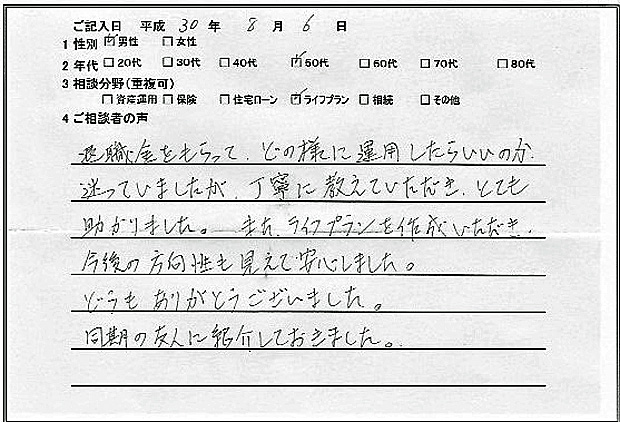 ご記入日 平成 30 年 8 月 6 日
1 性別 ☑男性 □女性
2 年代 □20代 □30代 □40代 ☑50代 □60代 □70代 □80代
3 相談分野(重複可)
□資産運用 □保険 □住宅ローン ☑ライフプラン □相続 □その他
4 ご相談者の声
退職金をもらって、どの様に運用したらいいのか
迷っていましたが、丁寧に教えていただき、とても
助かりました。 また、ライフプランを作成いただき、
今後の方向性も見えて安心しました。
どうもありがとうございました。
同期の友人に紹介しておきました。